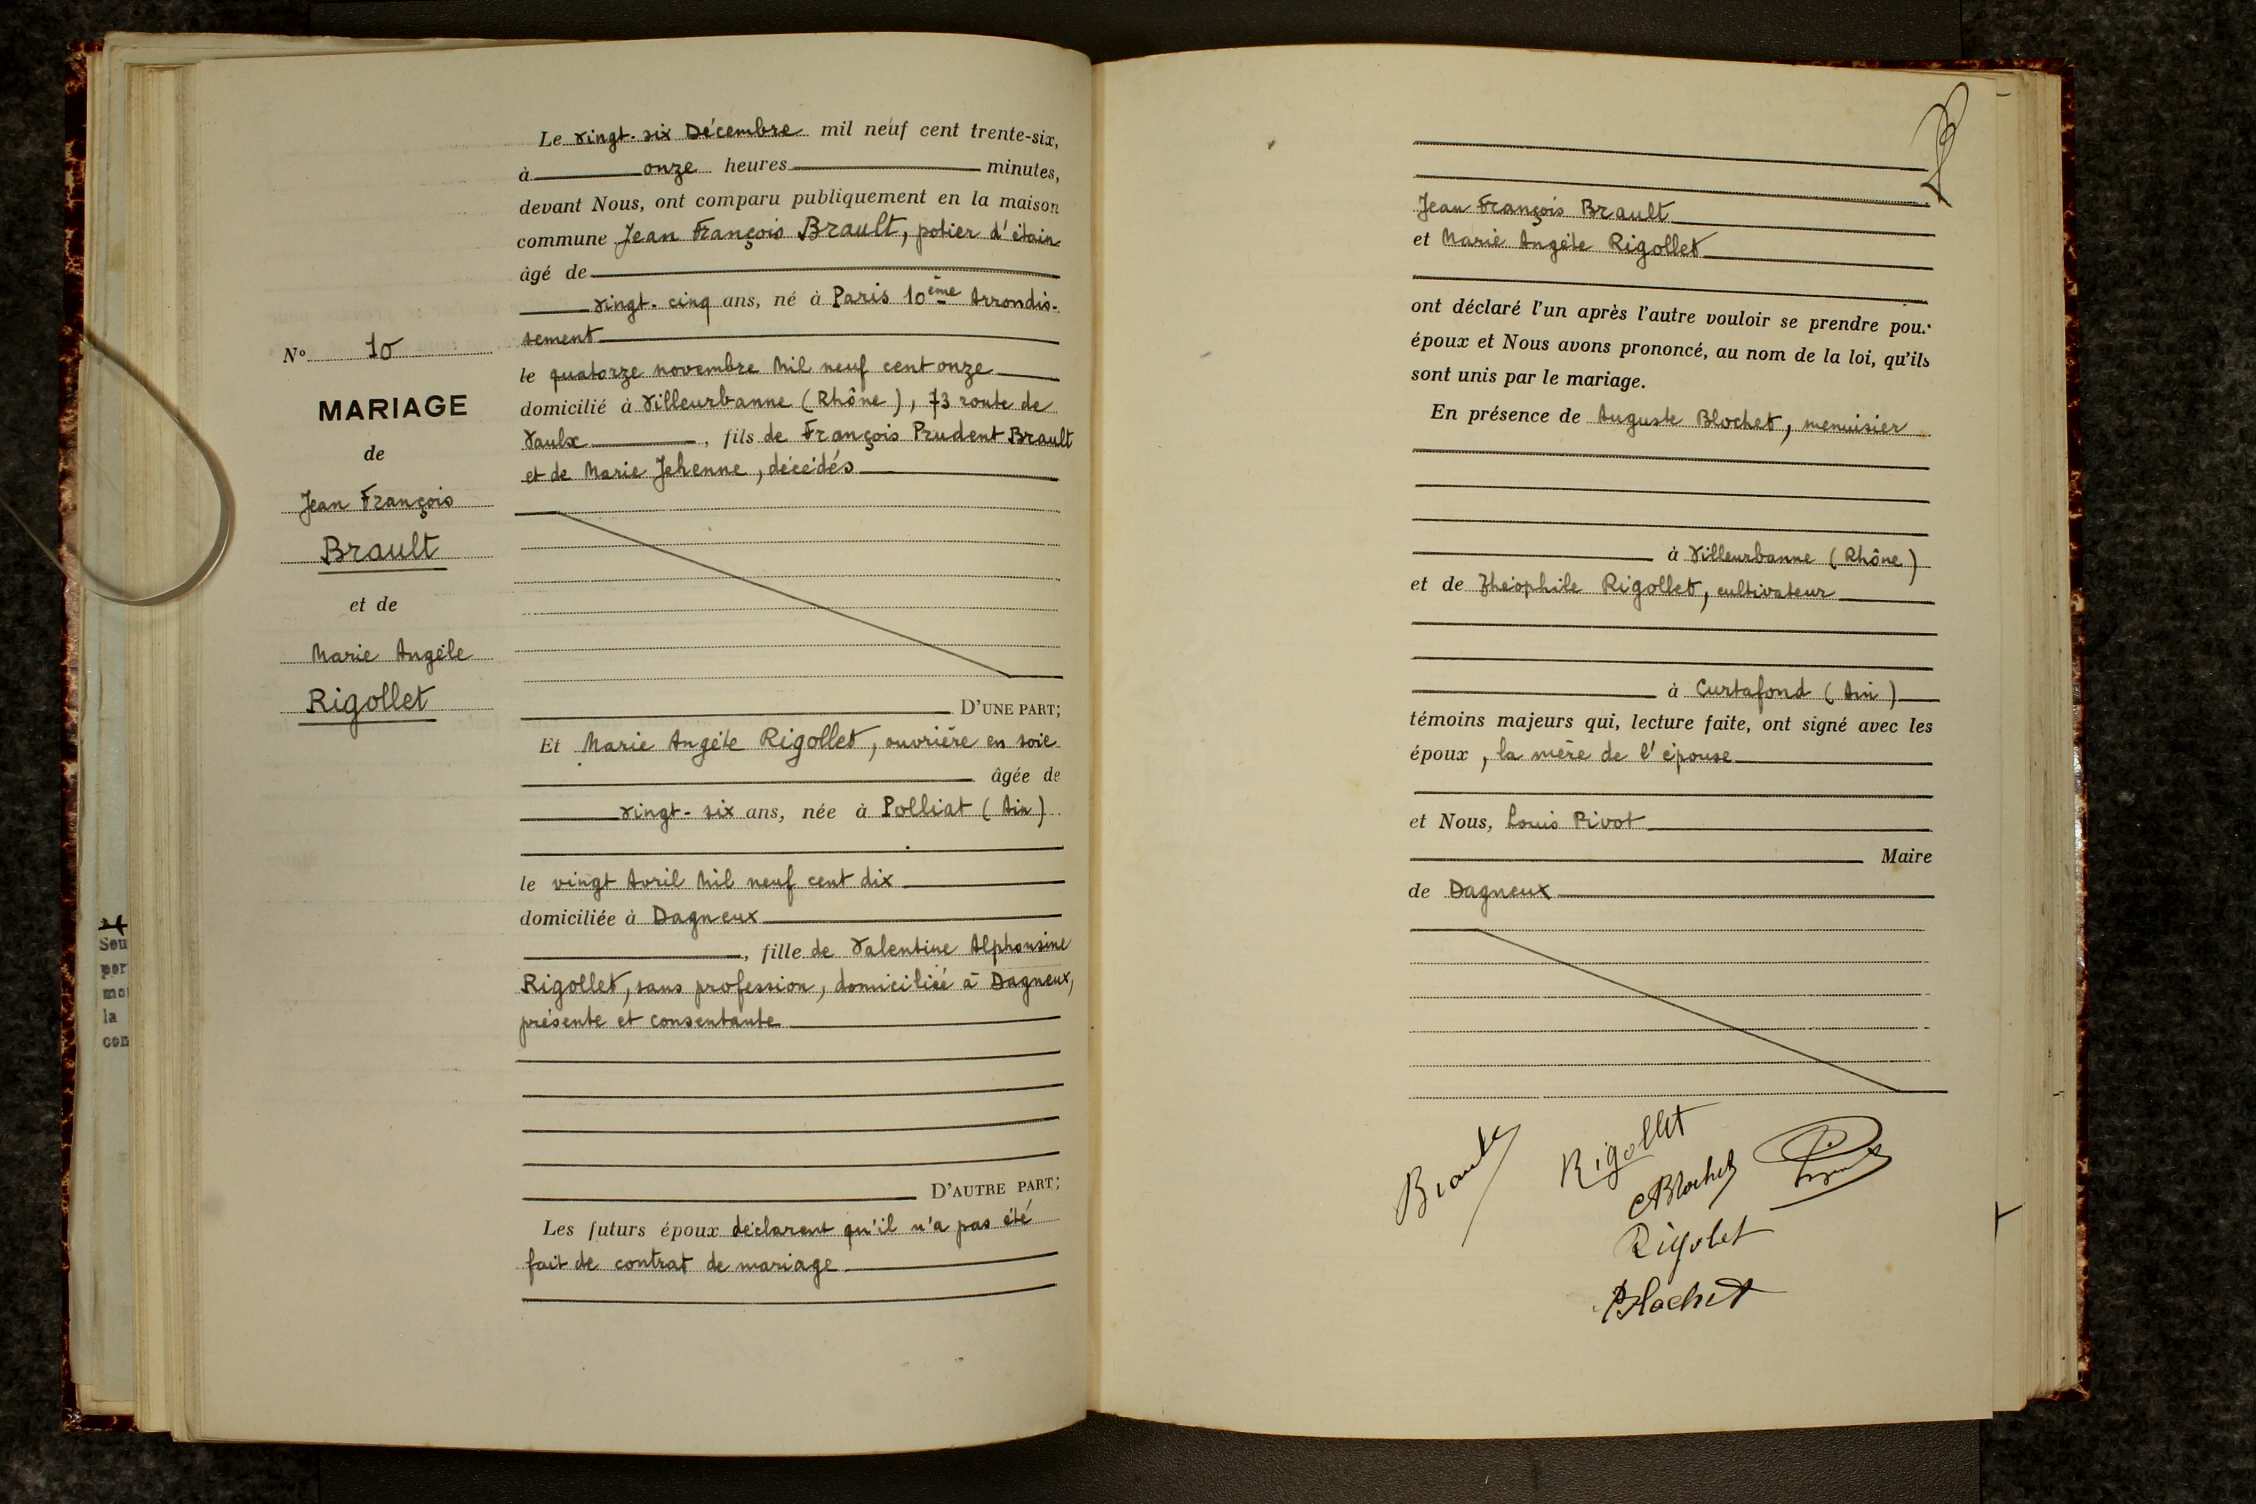 Le vingt-six Décembre mil neuf cent trente-six,
à onze heures minutes,
devant Nous, ont comparu publiquement en la maison
commune Jean François Brault, potier d'étain
âgé de
vingt-cinq ans, né à Paris 10ème Arrondis-
sement
le quatorze novembre Mil neuf cent onze
domicilié à Villeurbanne (Rhône), 73 route de
Vaulx, fils de François Prudent Brault
et de Marie Jehenne, décédés
D'UNE PART;
Et Marie Angèle Rigollet, ouvrière en soie
âgée de
vingt-six ans, née à Polliat (Ain)
le vingt Avril Mil neuf cent dix
domiciliée à Dagneux
, fille de Valentine Alphonsine
Rigollet, sans profession, domiciliée à Dagneux,
présente et consentante
D'AUTRE PART;
Les futurs époux déclarent qu'il n'a pas été
fait de contrat de mariage
No 10
MARIAGE
de
Jean François
Brault
et de
Marie Angèle
Rigollet
Sou
per
mo
la
con
Jean François Brault
et Marie Angèle Rigollet
ont déclaré l'un après l'autre vouloir se prendre pour
époux et Nous avons prononcé, au nom de la loi, qu'ils
sont unis par le mariage.
En présence de Auguste Blochet, menuisier
à Villeurbanne (Rhône)
et de Théophile Rigollet, cultivateur
à Curtafond (Ain)
témoins majeurs qui, lecture faite, ont signé avec les
époux, la mère de l'épouse
et Nous, Louis Pivot
Maire
de Dagneux
Brault
Rigollet
Blochet
Rigolet
Blochet